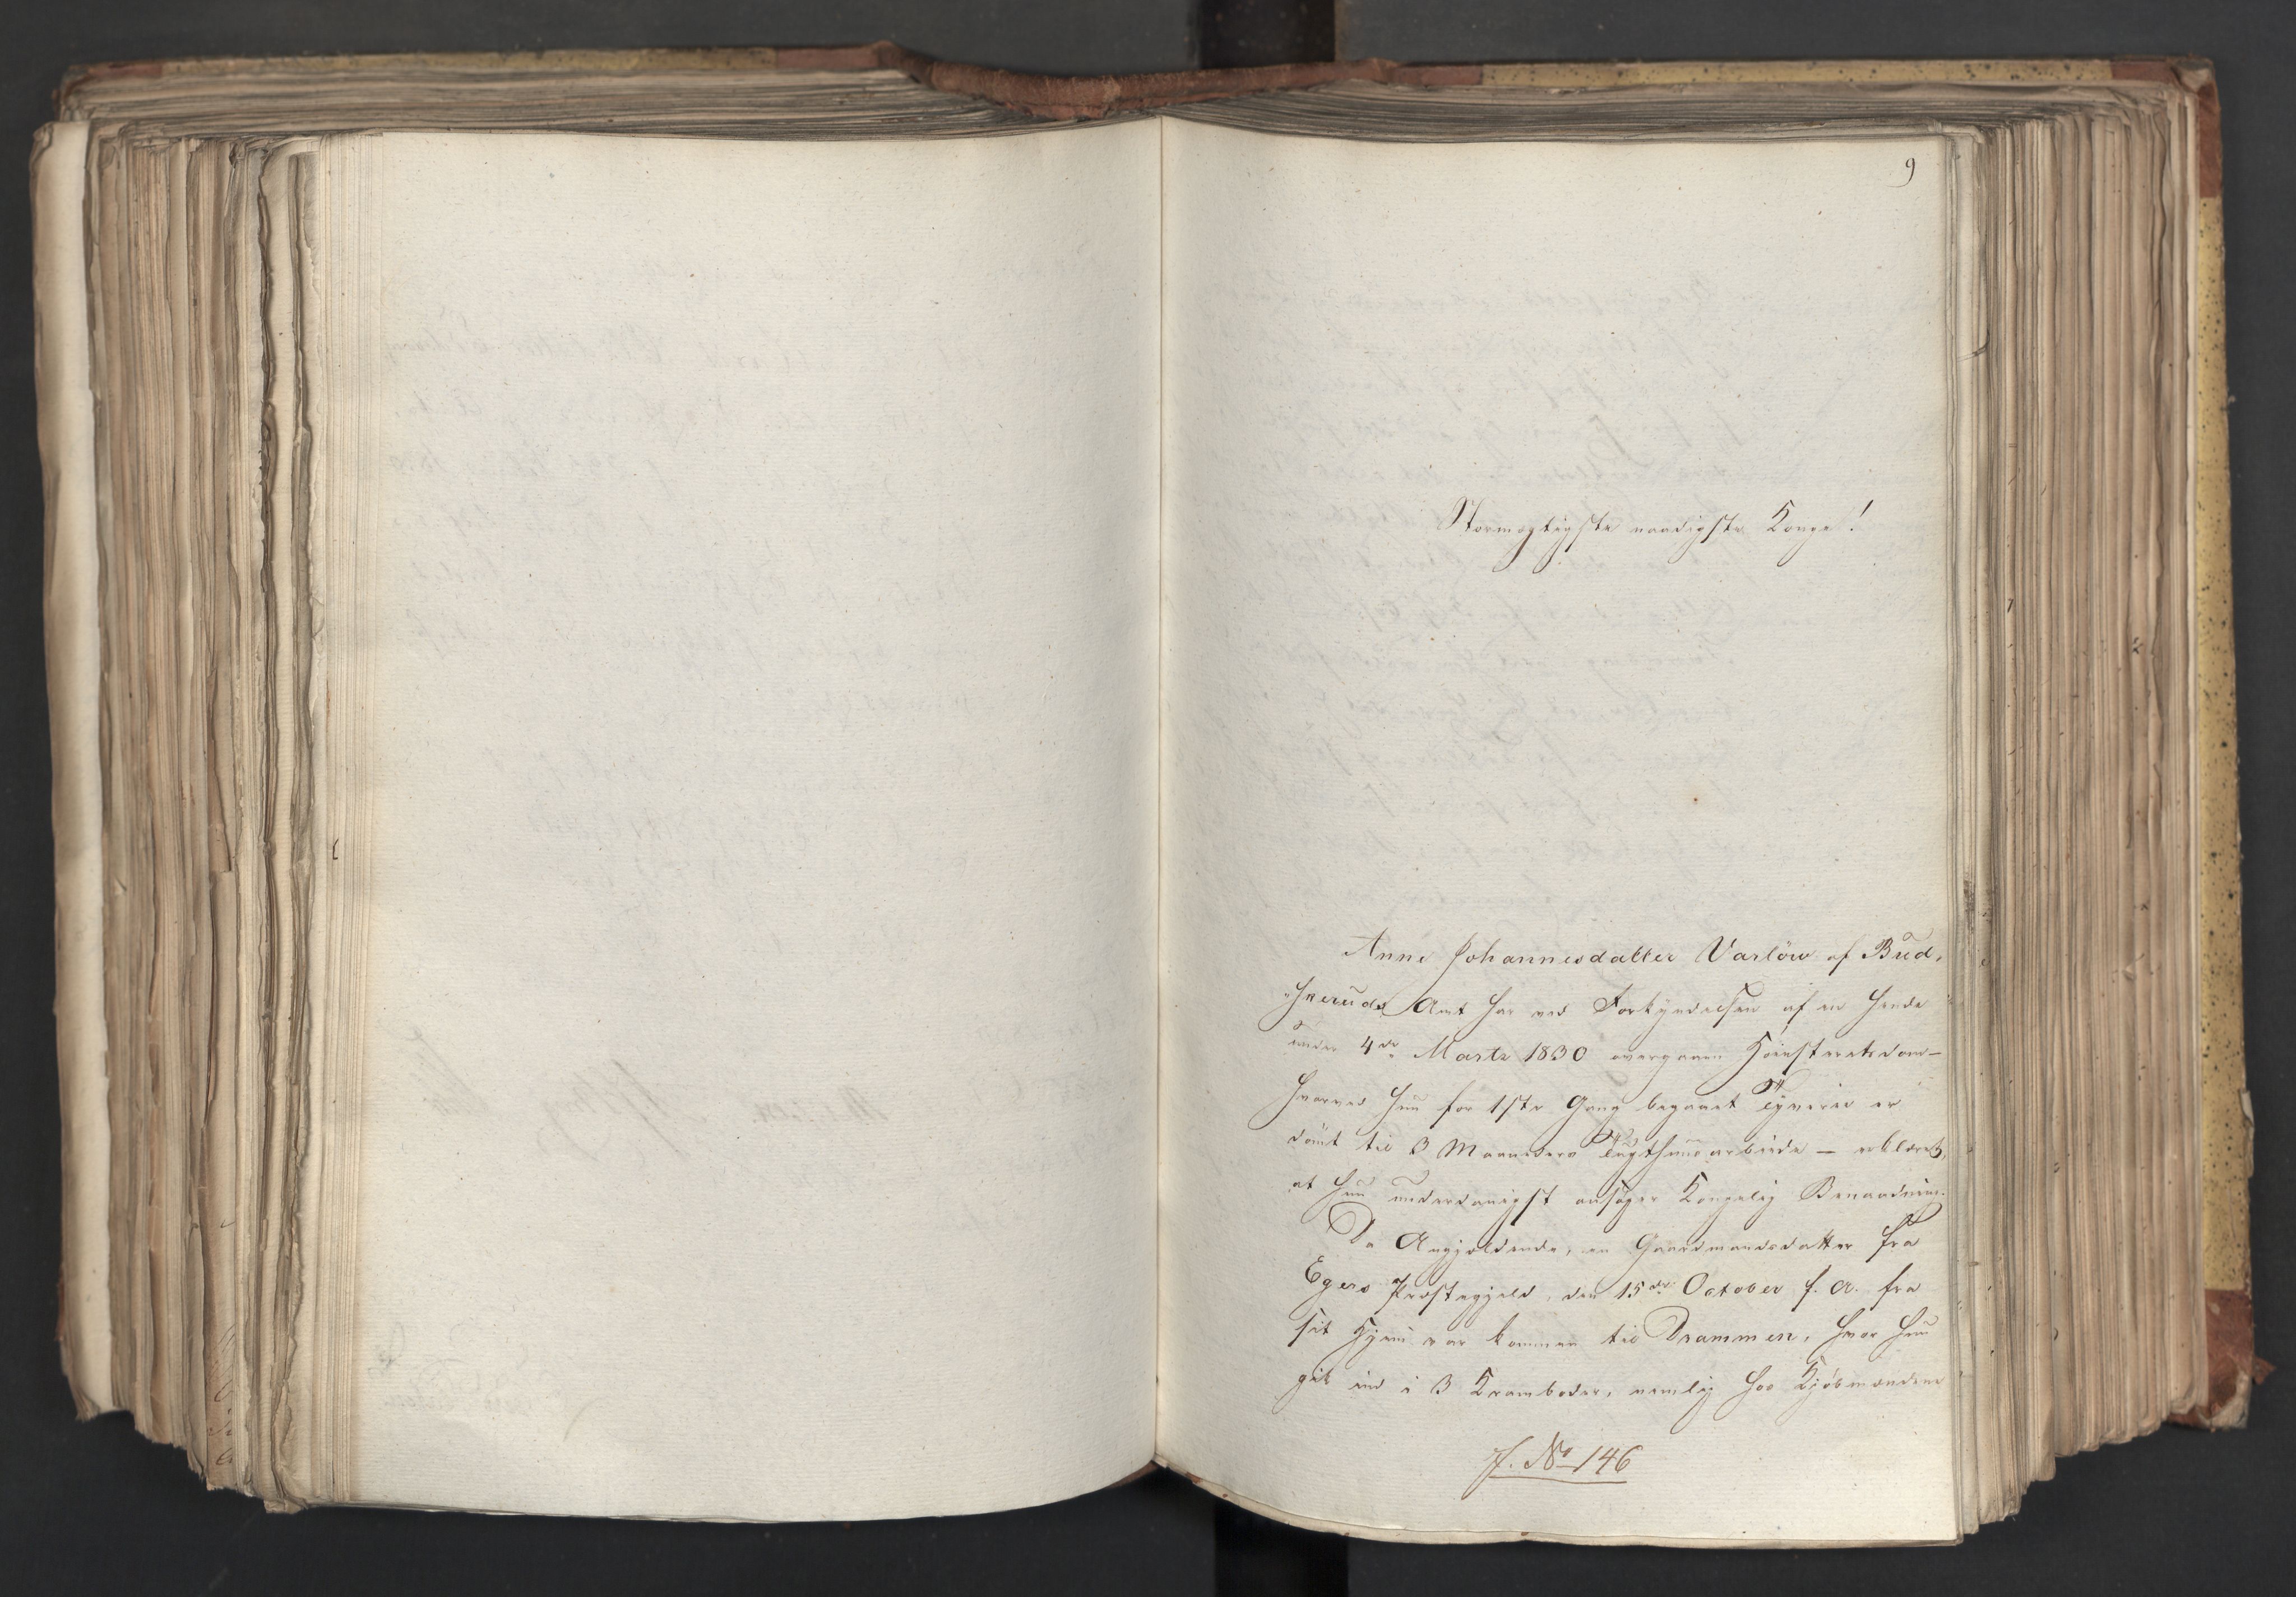 9
Stormægtigste naadigste Konge!
Anne Johannesdatter Varlöw af Bud,
"skeruds Amt har ved Forkyndelsen af en hende
under 4de Marts 1830 overgaaen Höiesteretsdom –
hvorved hun for 1ste Gang begaaet Tyverie er
dömt til 3 Maaneders Tugthuusarbeide – erklæret,
at hun underdanigst ansöger Kongelig Benaadning.
Da Angjeldende, en Gaardmandsdatter fra
Egers Præstegjeld, den 15de October f. A. fra
sit Hjem var kommen til Drammen, hvor hun
gik ind i 3 Kramboder, nemlig hos Kjöbmændene
J. No 146